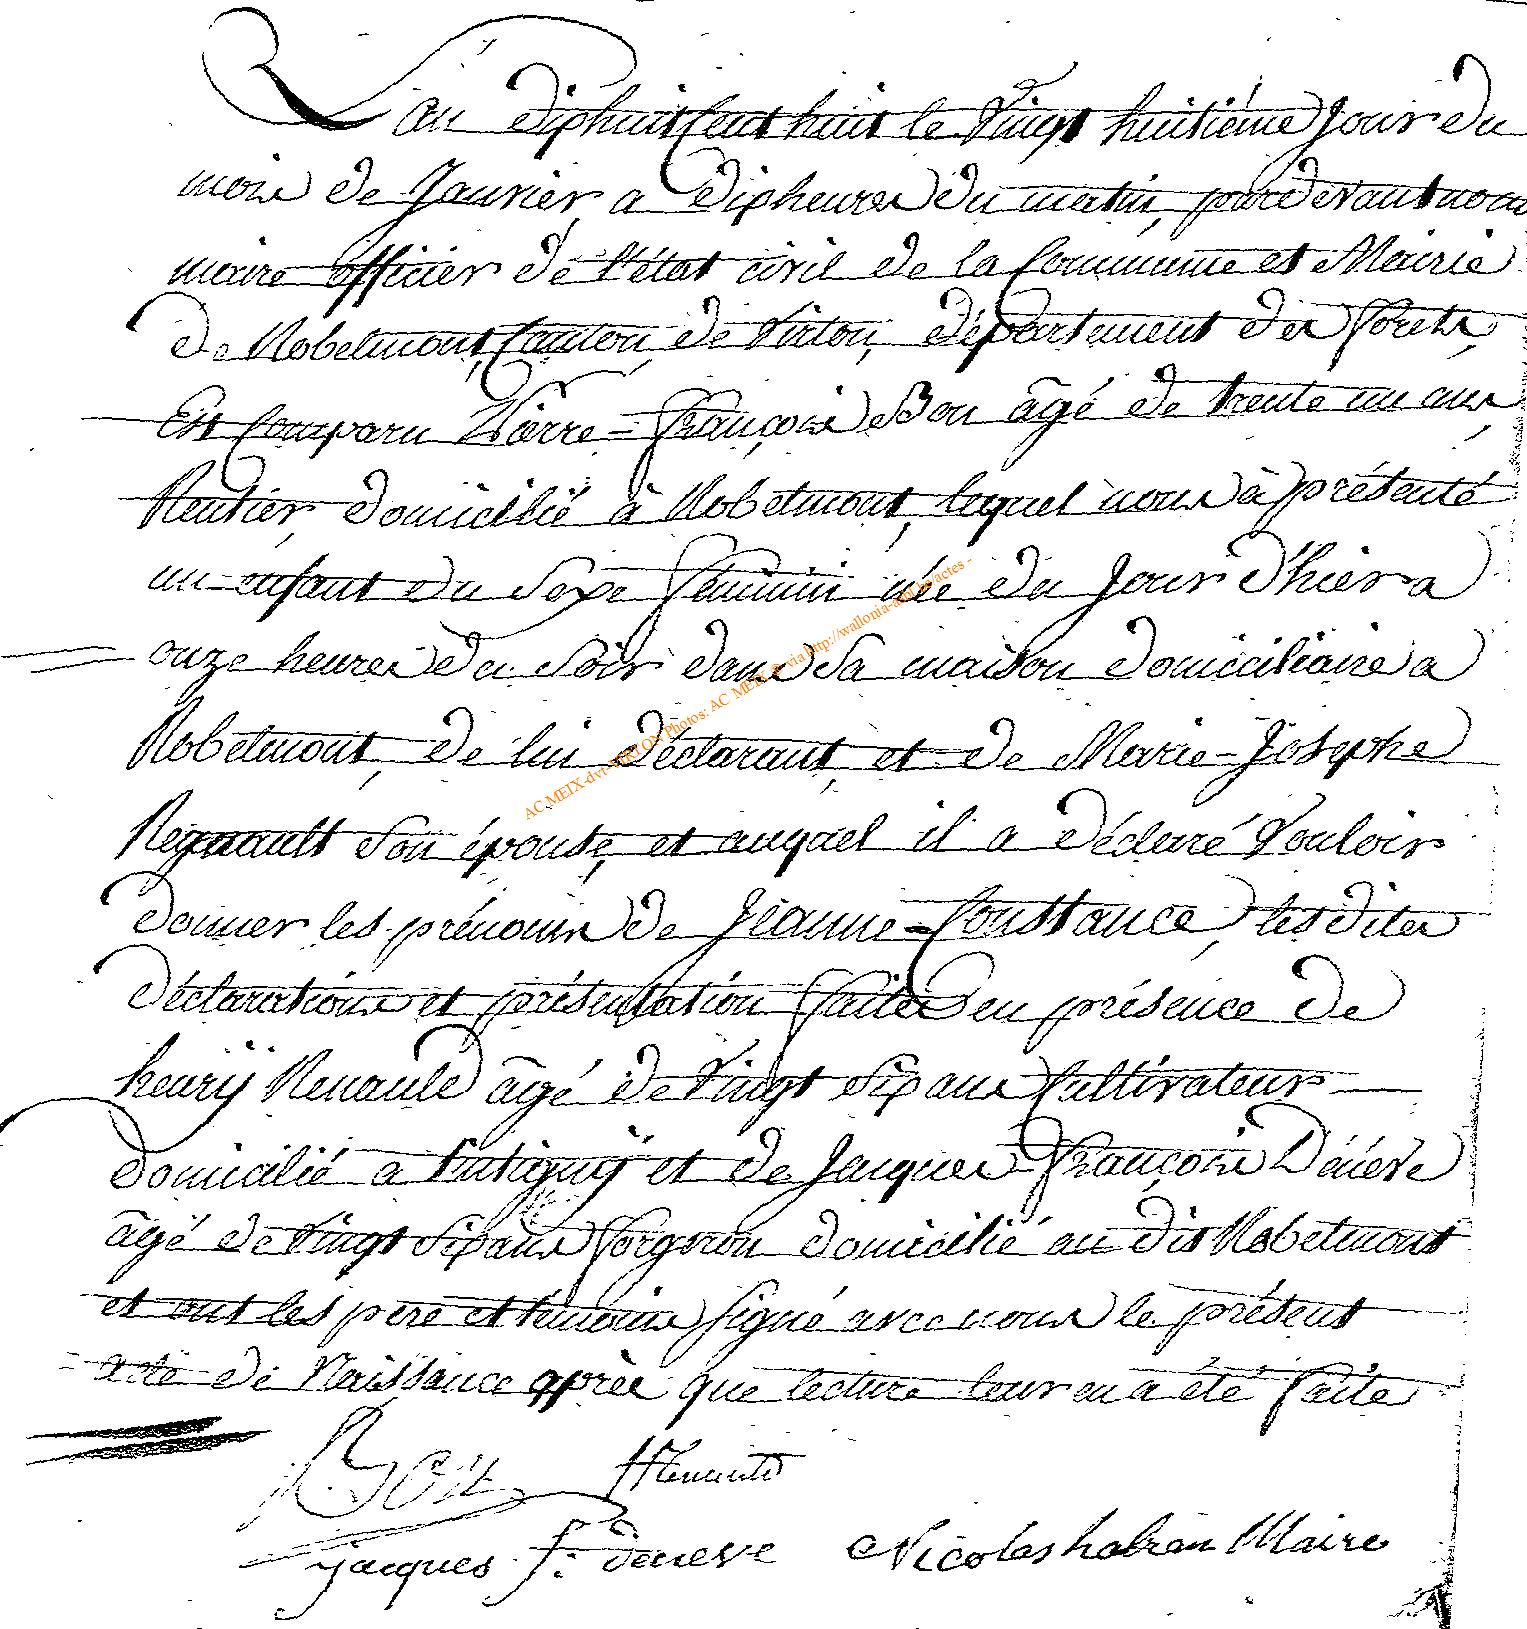 L'an dixhuit Cent huit le Vingt huitiéme Jour du
mois de Janvier a dix heures du matin, pardevant nous
maire officier de l'état civil de la Commune et Mairie
de Robelmont, Canton de Virton, département des forets,
Est Comparu Pierre-François Bon âgé de trente un ans
Rentier, domicilié à Robelmont, lequel nous à présenté
un enfant du Sexe féminin née du Jour d'hier a
onze heures du Soir dans Sa maison domiciliaire a
Robelmont, de lui déclarant, et de Marie-Josephe
Regnault Son épouse, et auquel il a déclaré Vouloir
donner les prénoms de Jeanne-Constance, les dites
déclarations et présentation faites en présence de
henrÿ Renauld âgé de Vingt Six ans Cultivateur
domicilié a Lutignÿ et de Jacques François Deneve
âgé de Vingt Six ans forgeron domicilié au dit Robelmont
et ont les pere et témoins signé avec nous le présent
acte de Naissance après que lecture leur en a été faite
Bon HRenauld
jacques f: deneve Nicolas habran Maire
AC MEIX-dvt-VIRTON Photos: AC MEIX-dvt via http://wallonia-asbl.be/actes -